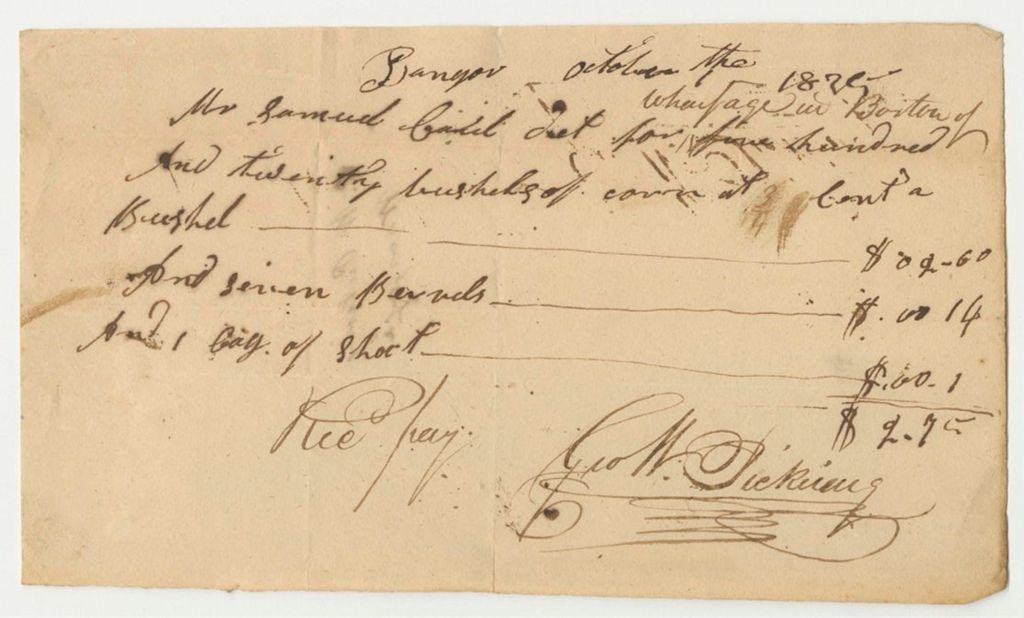 Bangor October the 1825
wharfage in Boston of
Mr Samuel Call Det for five hundred
And twenty bushels of corn at 3/4 Cent a
Bushel $ 02-60
And seven Barrels $.00 14
And 1 bag. of Short $.00-1
$ 2-75
Recd pay.
Geo W. Pickering